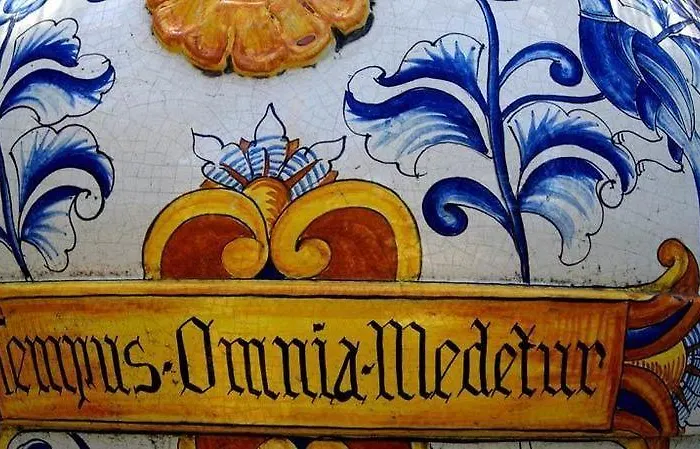 Tempus·Omnia·Medetur